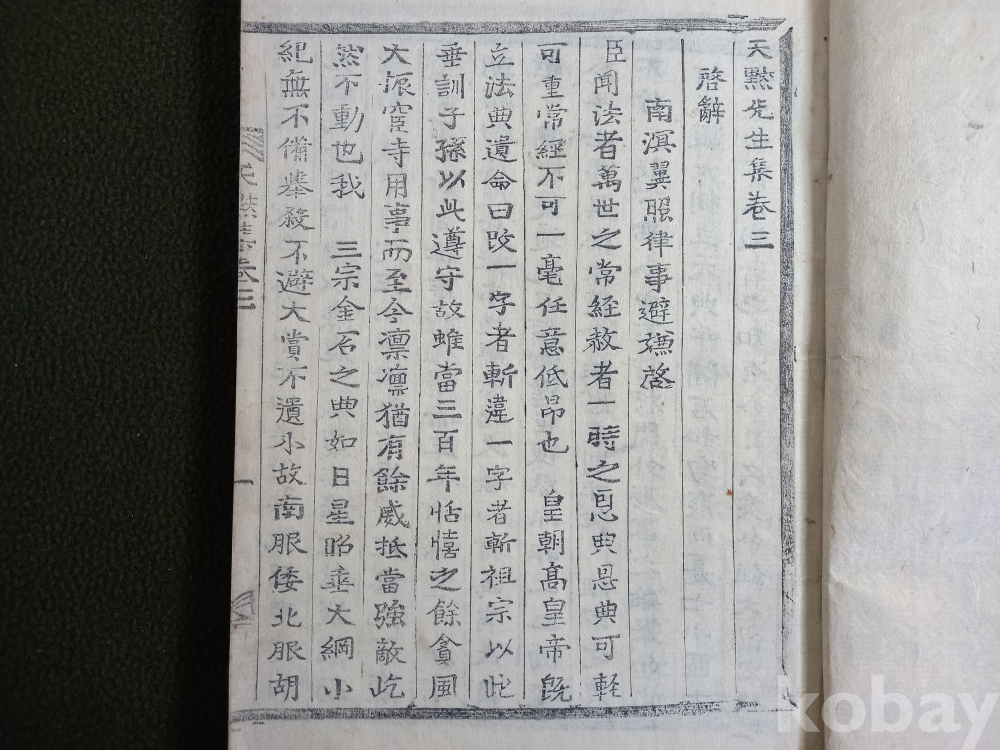 天默先生集卷三
啓辭
南溟翼照律事避嫌啓
臣聞法者萬世之常經赦者一時之恩典恩典可輕
可重常經不可一毫任意低昂也 皇朝高皇帝旣
立法典遺命曰改一字者斬違一字者斬祖宗以此
垂訓子孫以此遵守故雖當三百年恬憘之餘貪風
大振宦寺用事而至今凛凛猶有餘威抵當強敵屹
然不動也我 三宗金石之典如日星昭垂大綱小
紀無不備擧殺不避大賞不遺小故南服倭北服胡
天默集卷三
一
kobay